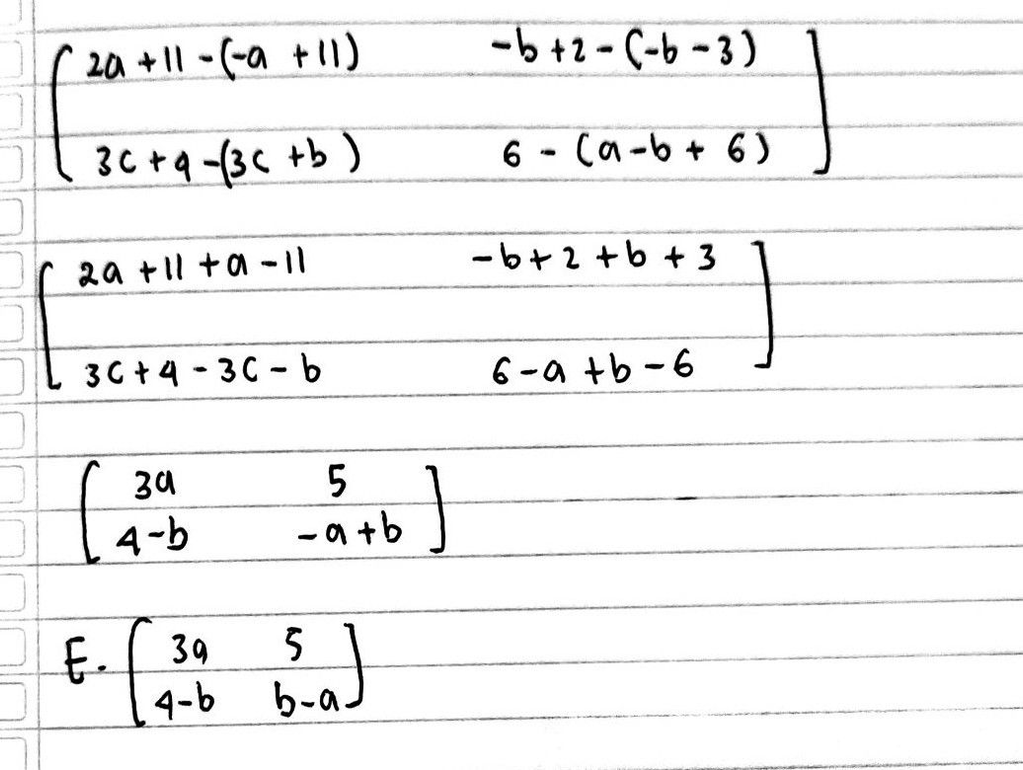 2a + 11 - (-a + 11) -b + 2 - (-b - 3)
3c + 4 - (3c + b) 6 - (a - b + 6)
2a + 11 + a - 11 -b + 2 + b + 3
3c + 4 - 3c - b 6 - a + b - 6
3a 5
4 - b -a + b
E. 3a 5
4 - b b - a